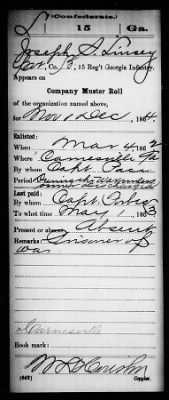 L (Confederate.)
15 Ga.
Joseph S. Linsey
Co. B, 15 Reg't Georgia Infantry.
Appears on
Company Muster Roll
of the organization named above,
for Nov & Dec, 1864.
Enlisted:
When Mar 4, 1862
Where Carnesville Ga
By whom Capt.
Period During the War unless
sooner discharged
Last paid:
By whom Capt.
To what time May 1, 1863
Present or absent Absent
Remarks: Prisoner of
War.
Carnesville
Book mark:
(642) Copyist.